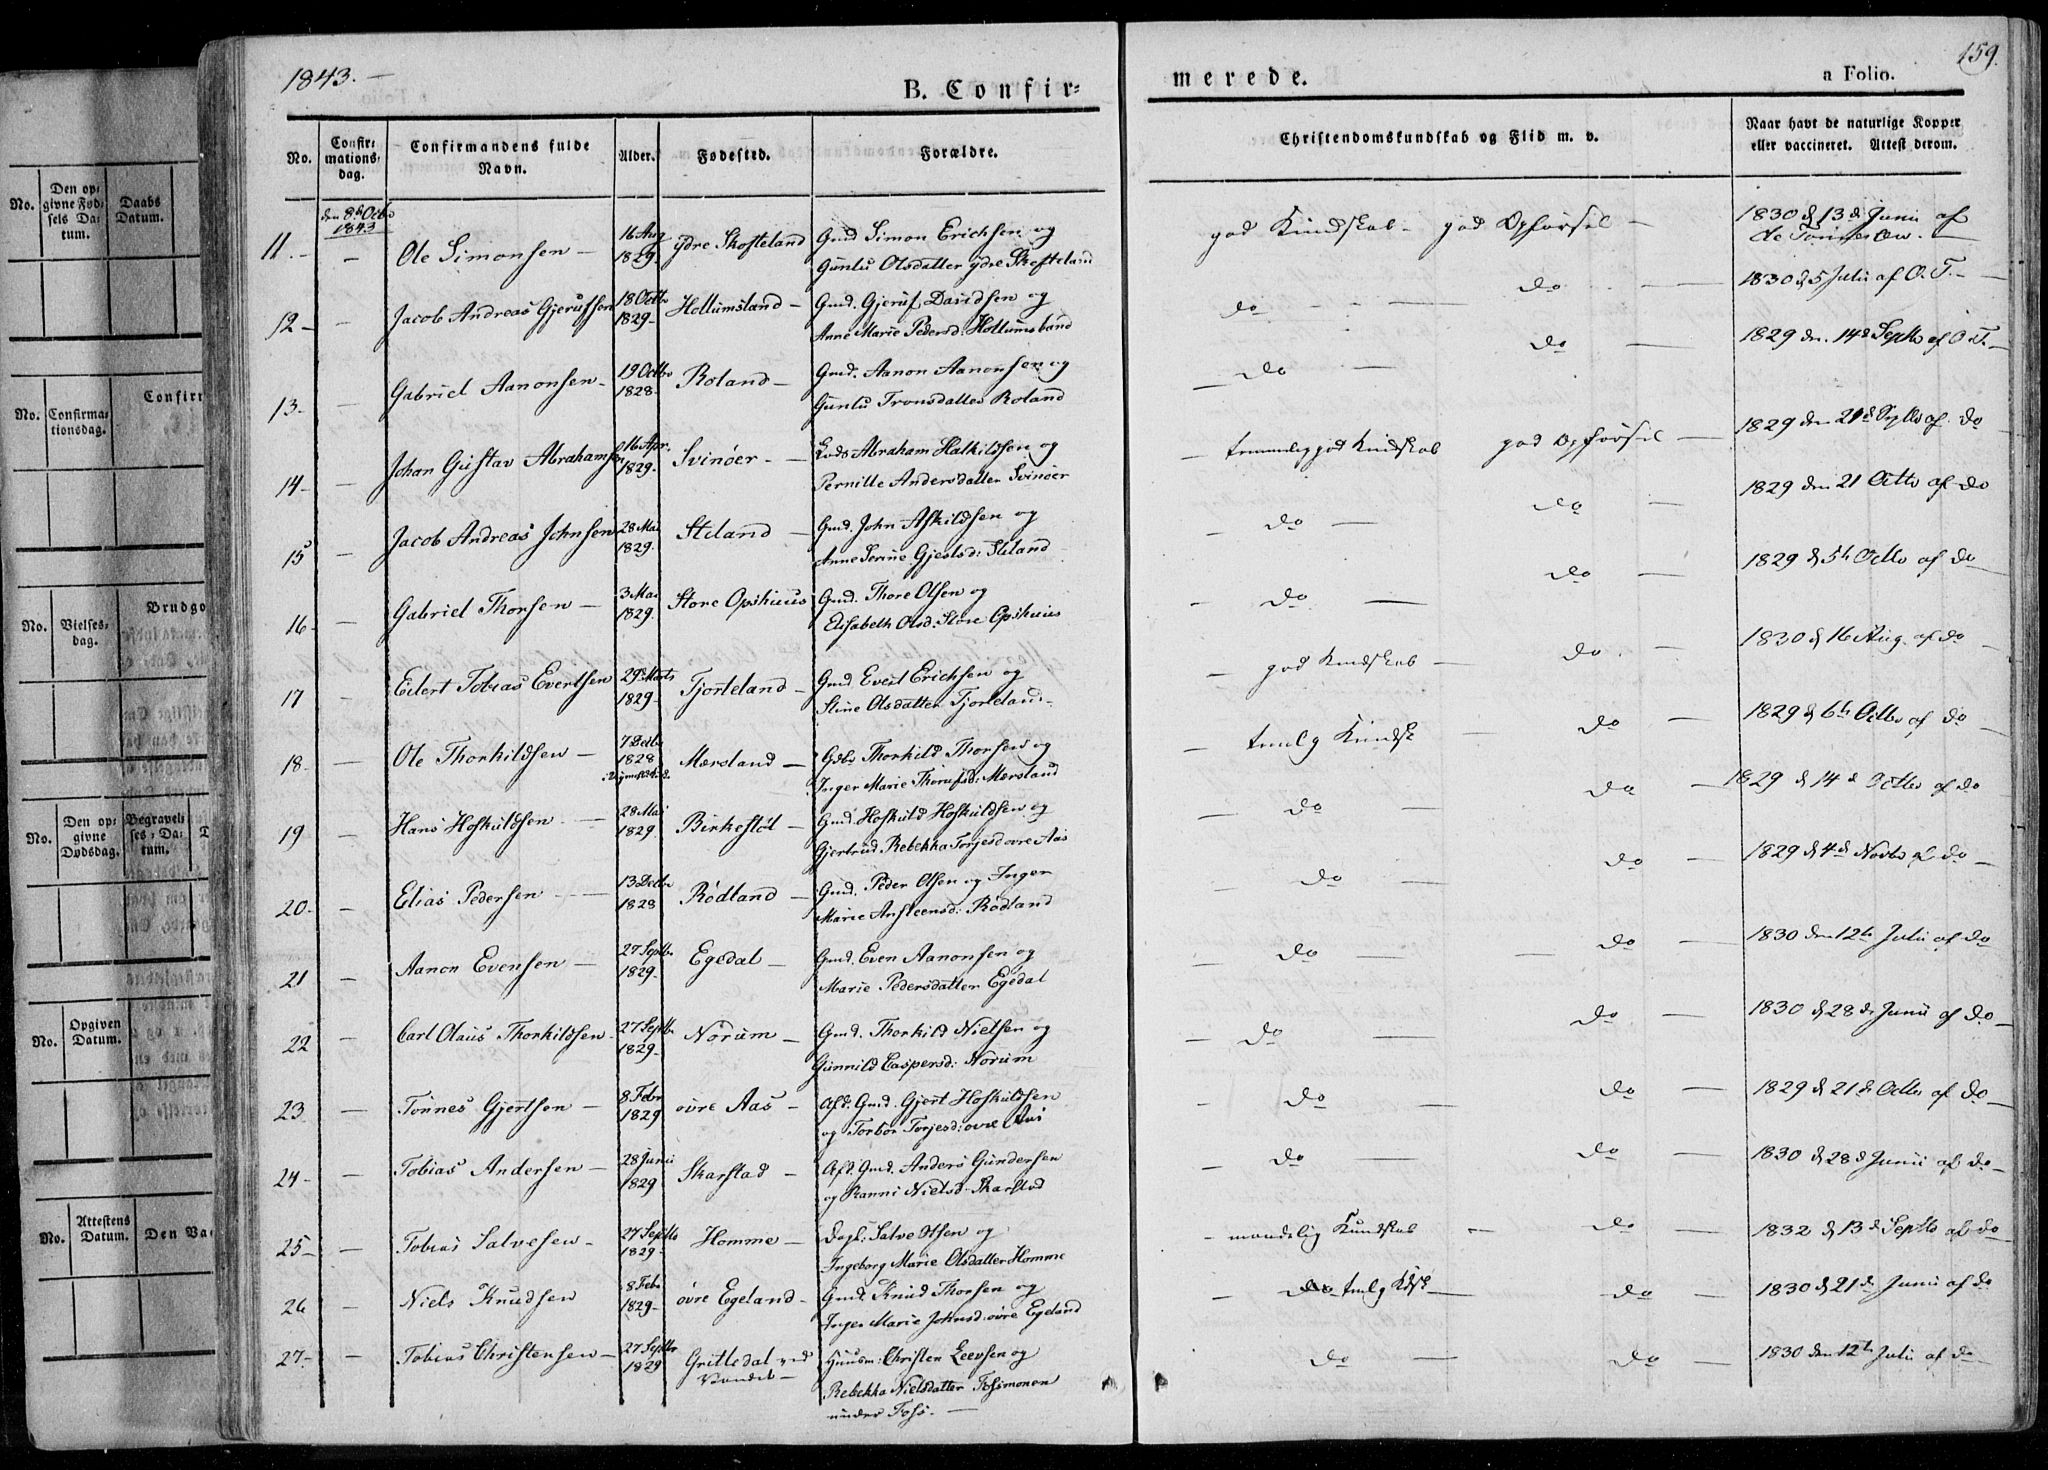 1843.
159.
B. Confirmerede.
a Folio.
No.
Confirmations-dag.
Confirmandens fulde Navn.
Alder.
Fødested.
Forældre.
Christendomskundskab og Flid m. v.
Naar havt de naturlige Kopper eller vaccineret. Attest derom.
den 8d Octbr 1843
11. — Ole Simonsen — 16 Aug 1829 ydre Skofteland Gmd Simon Erichsen og
Gunlu Olsdatter ydre Skofteland
god Kundskab — god Opførsel — 1830 d 13de Junii af
12 — Jacob Andreas Gjerufsen 18 Octbr 1829 — Hollumsland — Gmd. Gjeruf Davidsen og
Anne Marie Pedersd: Hollumsland
do — do — 1830 d 5 Julii af O. T. —
13 — Gabriel Aanonsen — 19 Octbr 1828 — Roland — Gmd. Aanon Aanonsen og
Gunlu Tronsdatter Roland
— do — do — 1829 den 14d Septbr af O T. —
14 — Johan Gustav Abrahamsen 16 Apr. 1829 — Svinøer — Lods Abraham Halkildsen og
Pernille Andersdatter Svinøer
— temmelig god Kundskab god Opførsel — 1829 den 21d Septbr af do
15 — Jacob Andreas Johnsen 28 Mai 1829. Stiland — Gmd. John Askildsen og
Anne Serine Gjestsd: Stiland
— do — do — 1829 den 21 Octbr af do
16 — Gabriel Thorsen — 3 Mai 1829. Store Opshuus Gmd. Thore Olsen og
Elisabeth Olsd: Store Opshuus
— do — do — 1829 d 5th Octbr af do
17 — Eilert Tobias Evertsen 29 Marts 1829 — Tjorteland — Gmd Evert Erichsen og
Stine Olsdatter Tjorteland.
— god Kundskab — do — 1830 d 16 Aug. af do
18 — Ole Thorkildsen — 7 Decbr 1828 Mersland — Thorkild Thorsen og
Inger Marie Thorufsd: Mersland
— temlg Kundsk — do — 1829 d 6th Octbr af do
19 — Hans Hoskuldsen — 28 Mai 1829. Birkestøl — Gmd. Hoskuld Hoskuldsen og
Gjertrud Rebekka Torjesd øvre Aas
— do — do — 1829 d 14d Octbr af do
20 — Elias Pedersen — 13 Decbr 1828 Rødland — Gmd. Peder Olsen og Inger
Marie Ansteensd: Rødland
— do — do — 1829 d 4d Novbr af do
21 — Aanon Evensen — 27 Septbr 1829 — Egedal — Gmd. Even Aanonsen og
Marie Pedersdatter Egedal
— do — do — 1830 den 12th Julii af do
22 — Carl Olaus Thorkildsen 27 Septbr 1829 — Norum — Gmd. Thorkild Nielsen og
Gunnild Caspersd: Norum
— do — do — 1830 d 28d Junii af do —
23 — Tønnes Gjertsen — 8 Febr 1829 øvre Aas — Afd. Gmd. Gjert Hoskuldsen
og Torbor Torjesd: øvre Aas
— do — do — 1829 d 21de Octbr af do —
24 — Tobias Andersen — 28 Junii 1829 Skarstad — Afd. Gmd. Anders Gundersen
og Ranni Nielsd. Skarstad
— do — do — 1830 d 28d Junii af do —
25 — Tobias Salvesen — 27 Septbr 1829 — Homme — Salve Olsen og
Ingeborg Marie Olsdatter Homme
— maadelig Kundskab — do — 1832 d 13d Septbr af do —
26 — Niels Knudsen 8 Febr 1829 — øvre Egeland — Gmd. Knud Thorsen og
Inger Marie Johnsd: øvre Egeland
— temlg Kdsk — do — 1830 d 21d Junii af do
27 — Tobias Christensen — 27 Septbr 1829 Grittedal ved Vandet — Huusm: Christen Leevsen og
Rebekka Nielsdatter
under Fosø. —
do — do — 1830 den 12th Julii af do —
No.
Den opgivne Fødsels Datum.
Daabs Datum.
Confirm
No.
Confirmationsdag.
Brudgo
No.
Vielsesdag.
No.
Den opgivne Dødsdag.
Begravelses-Datum.
No.
Opgiven Datum.
No.
Attestens Datum.
Den Va